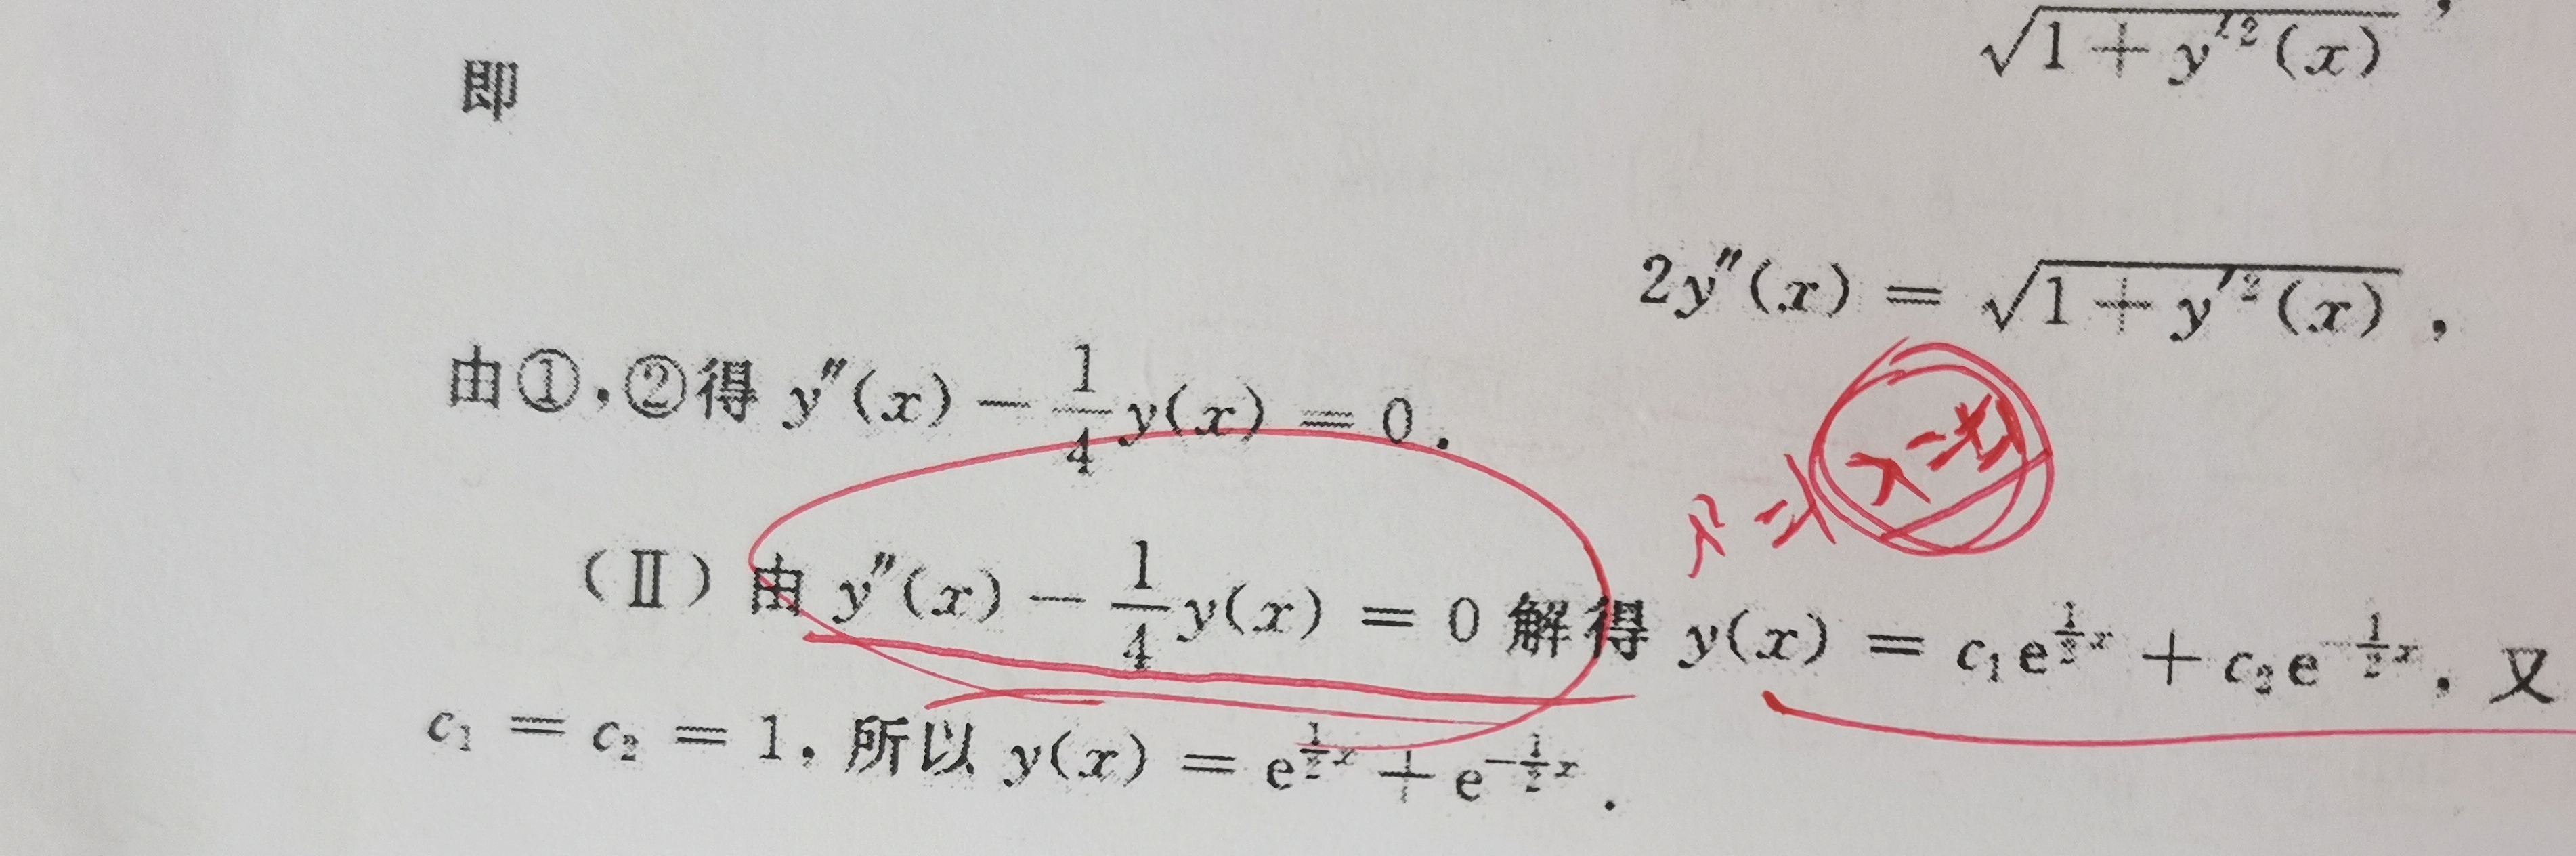 √(1 + y′²(x)) ,
即
2y″(x) = √(1 + y′²(x)) ,
由①,②得 y″(x) − 1/4 y(x) = 0 .
λ² = λ = ±
(Ⅱ) 由 y″(x) − 1/4 y(x) = 0 解得 y(x) = c₁e^(1/2 x) + c₂e^(−1/2 x) , 又
c₁ = c₂ = 1 , 所以 y(x) = e^(1/2 x) + e^(−1/2 x) .